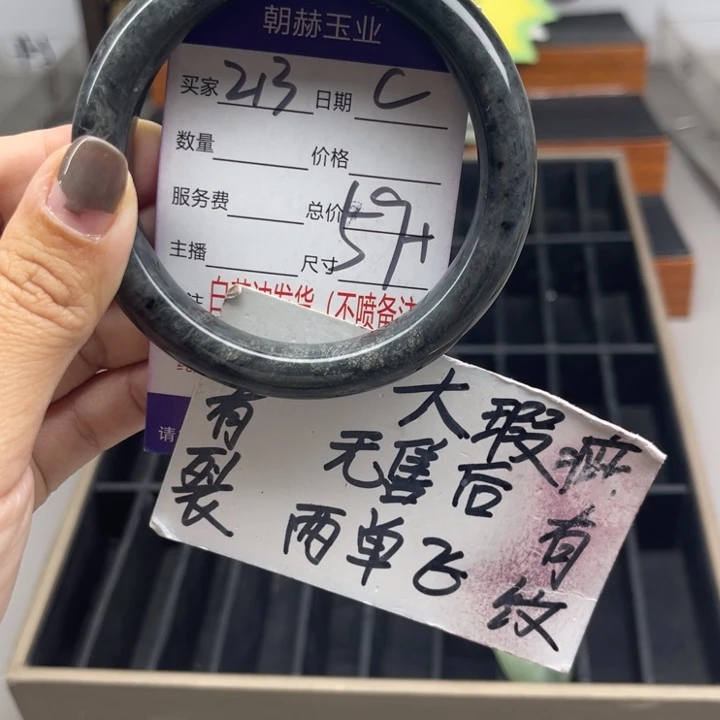 朝赫玉业
买家 213 日期 C
数量 价格
服务费 总价
主播 尺寸 59H
请
有裂
大瑕疵
无售后
两单飞
有纹